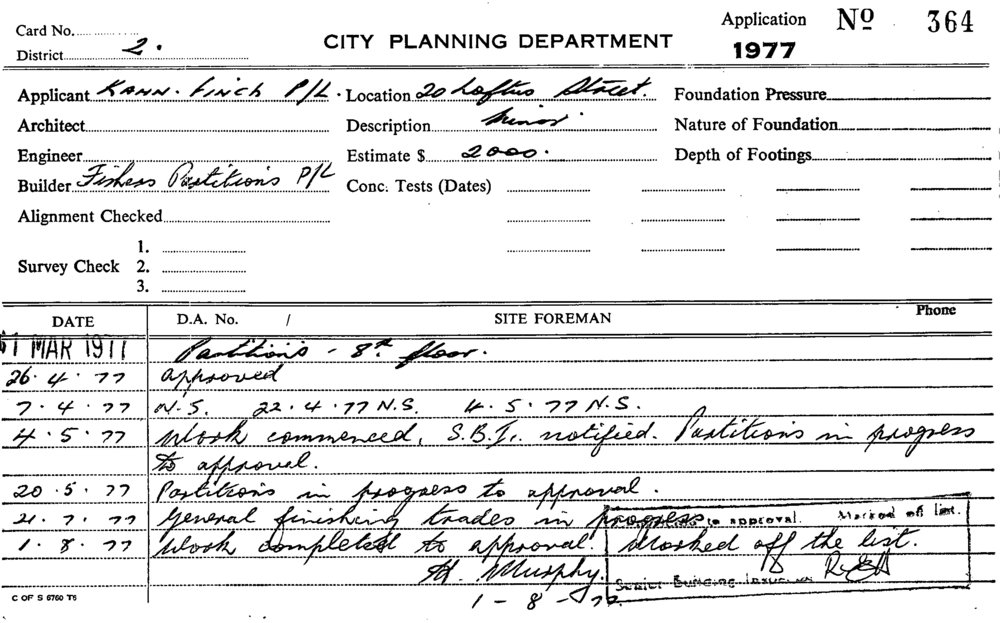 Card No.
District 2.
CITY PLANNING DEPARTMENT
Application Nº 364
1977
Applicant Kann. Finch P/L. Location 20 Loftus Street. Foundation Pressure
Architect Description Minor Nature of Foundation
Engineer Estimate $ 2000. Depth of Footings
Builder Fishers Partitions P/L Conc. Tests (Dates)
Alignment Checked
1.
Survey Check 2.
3.
DATE D.A. No. / SITE FOREMAN Phone
MAR 1977 Partitions - 8th floor.
26.4.77 approved
7.4.77 N.S. 22.4.77 N.S. 4.5.77 N.S.
4.5.77 Work commenced, S.B.I. notified. Partitions in progress
to approval.
20.5.77 Partitions in progress to approval.
21.7.77 General finishing trades in progress to approval. Marked off list.
1.8.77 Work completed to approval. Marked off the list.
H. Murphy. Senior Building Inspector
1-8-77.
C OF S 6760 T5